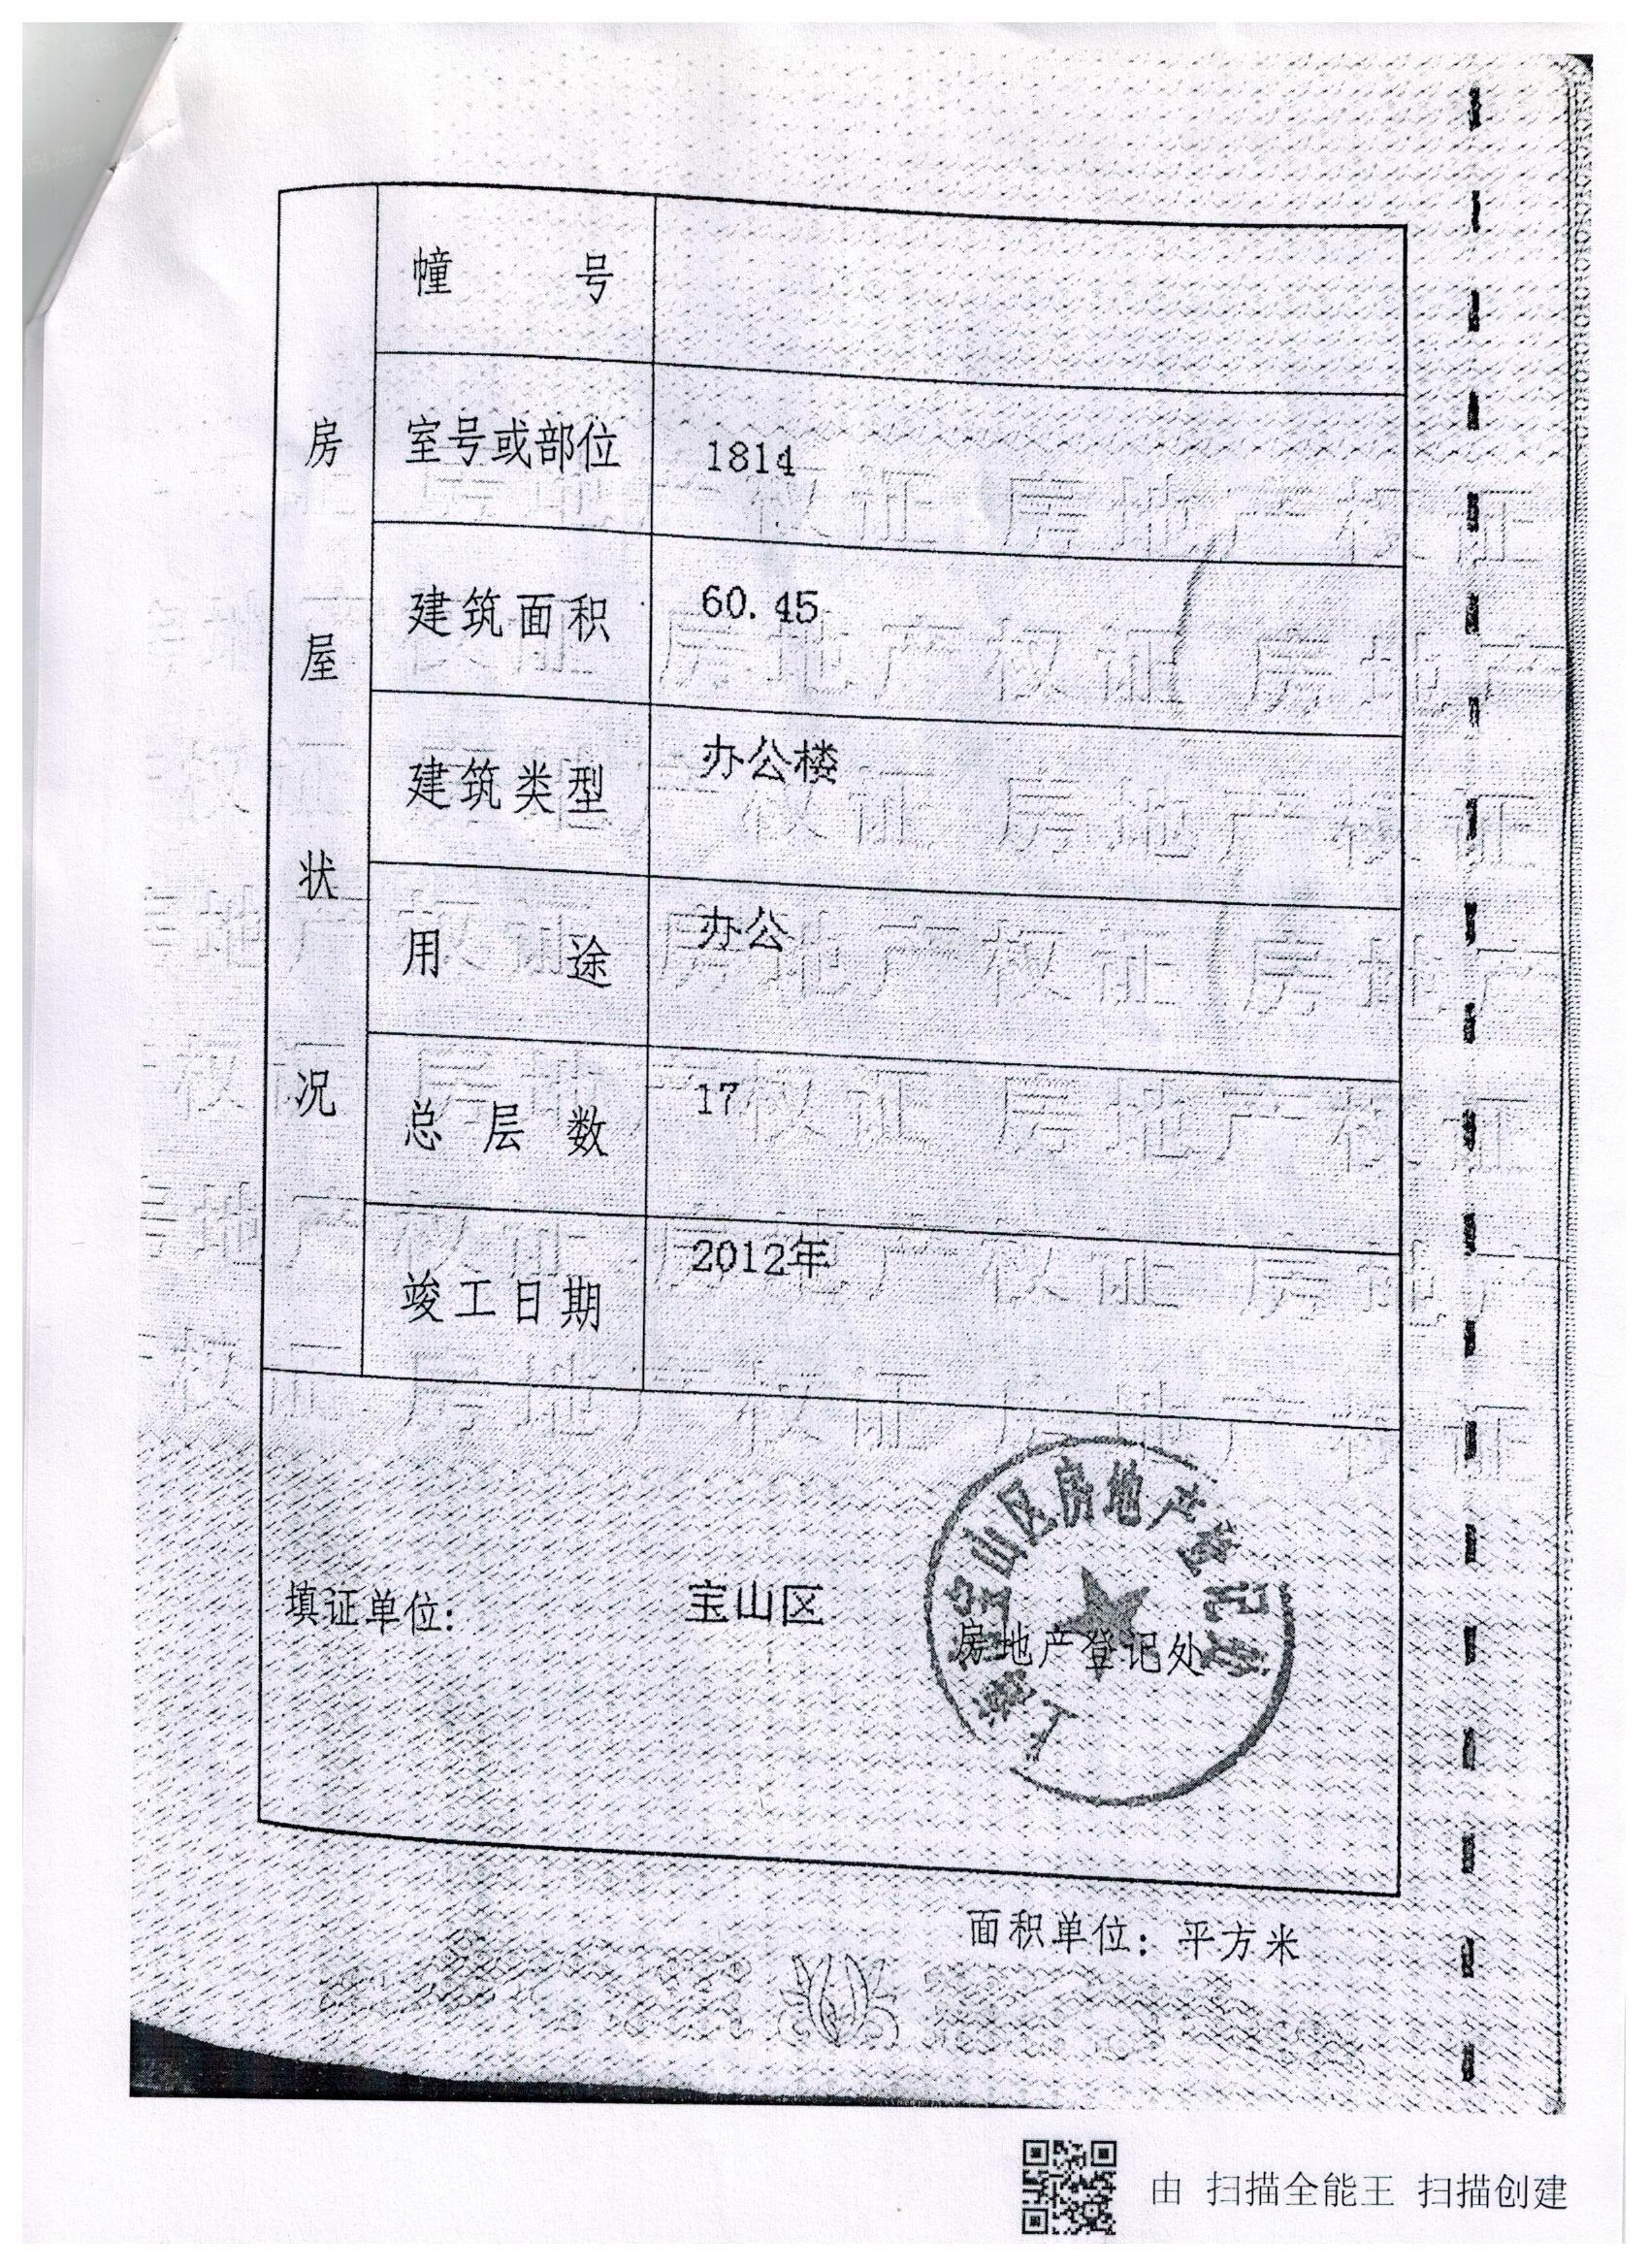 房屋状况
幢号
室号或部位 1814
建筑面积 60.45
建筑类型 办公楼
用途 办公
总层数 17
竣工日期 2012年
填证单位: 宝山区 房地产登记处
上海市宝山区房地产登记处
面积单位: 平方米
房地产权证
由 扫描全能王 扫描创建